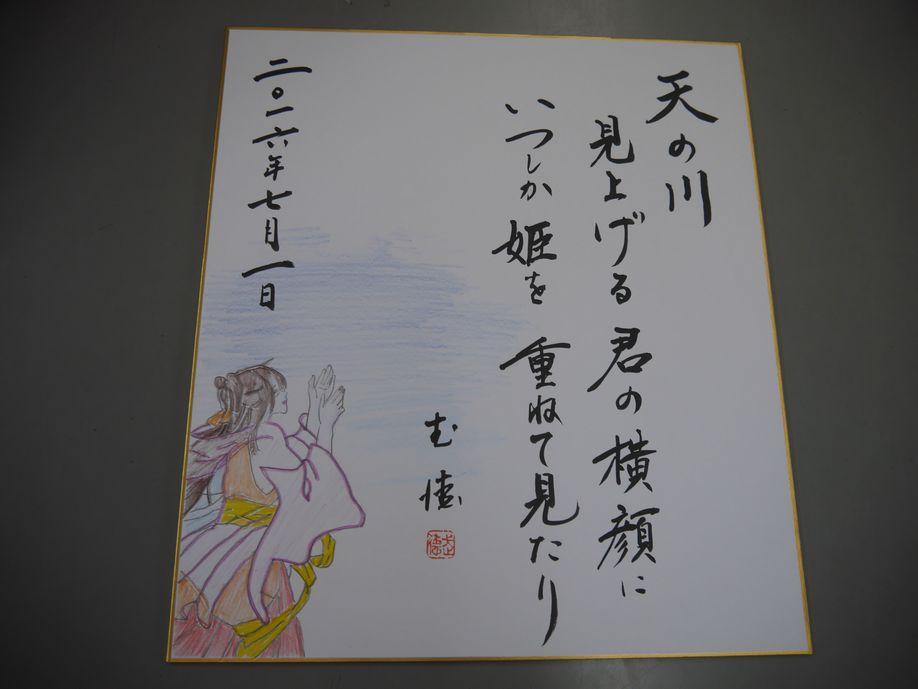 天の川
見上げる君の横顔に
いつしか姫を重ねて見たり
二〇一六年七月一日